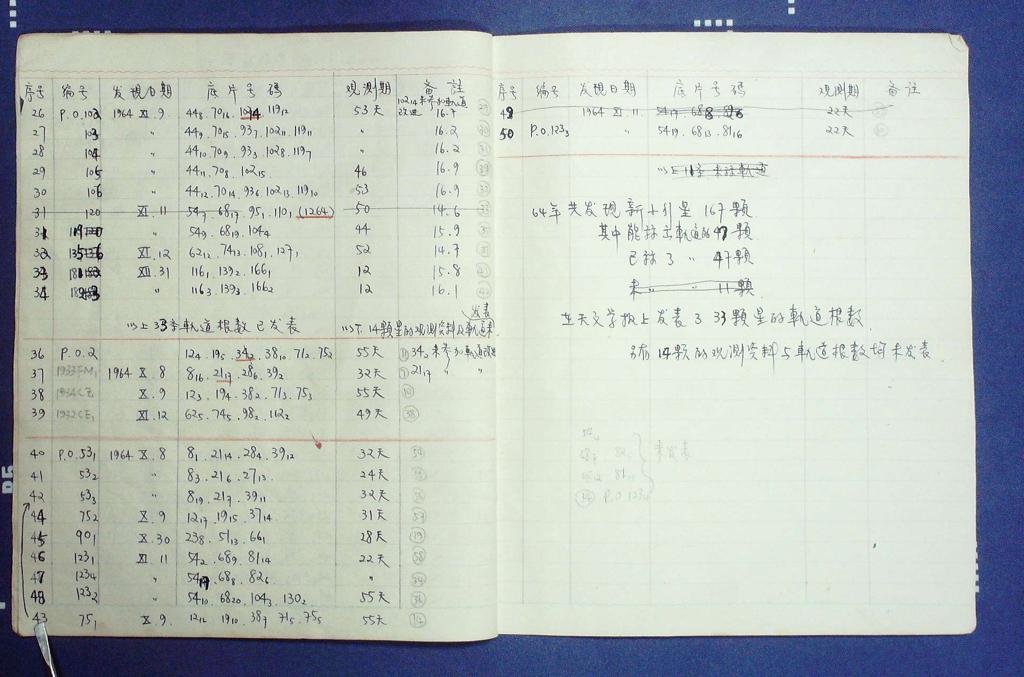 序号 编号 发现日期 底片号码 观测期 备注
10214未参加轨道改进
26 P.O.102 1964 XI. 9. 448.7016.1024.11912 53天 16.7
27 103 〃 449.7015.937.10211.11911 16.2
28 104 〃 4410.709.933.1028.1197 16.2
29 105 〃 4411.708.10215 46 16.9
30 106 〃 4412.7014.936.10213.11910 53 16.9
31 120 XI. 11 547.6817.951.1101(1264) 50 14.6
549.6819.1044 44 15.9
XII. 12 6212.7413.1081.1271 52 14.7
XII. 31 1161.1392.1661 12 15.8
34 〃 1163.1393.1662 12 16.1
以上33条轨道根数已发表 以下14颗星的观测资料及轨道未发表
36 P.O.2 124.195.342.3810.712.752 55天 342未参加轨道改进
37 1933FM1 1964 X. 8 816.2117.286.392 32天 2117 〃 〃
38 X. 9 123.194.382.713.753 55天
39 1932CE1 XI. 12 625.745.982.1122 49天
40 P.O.531 1964 X. 8 81.2114.284.3912 32天
41 532 〃 83.216.2713. 24天
42 533 〃 819.217.3911 32天
44 752 X. 9 1217.1915.3714 31天
45 901 X. 30 238.5113.661 28天
46 1231 XI. 11 542.689.8114 22天
47 1234 〃 5419.688.826 〃
48 1232 〃 5410.6820.1043.1302. 55天
43 751 X. 9. 1212 1910.387 715.755 55天
序号 编号 发现日期 底片号码 观测期 备注
49 1964 XI. 11. 22天
50 P.O.1233 〃 5419.6813.8116 22天
以上11条未注轨道
64年共发现新小行星167颗
其中能算出轨道的47颗.
已算了 〃 47颗
未 〃 〃 11颗
在天文学报上发表了33颗星的轨道根数.
另有14颗的观测资料与轨道根数均未发表.
未发表